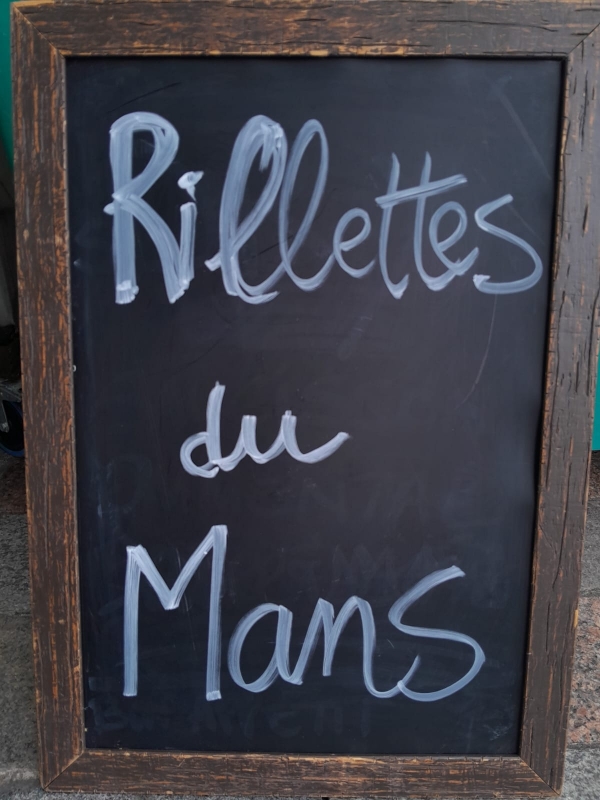 Rillettes
du
Mans